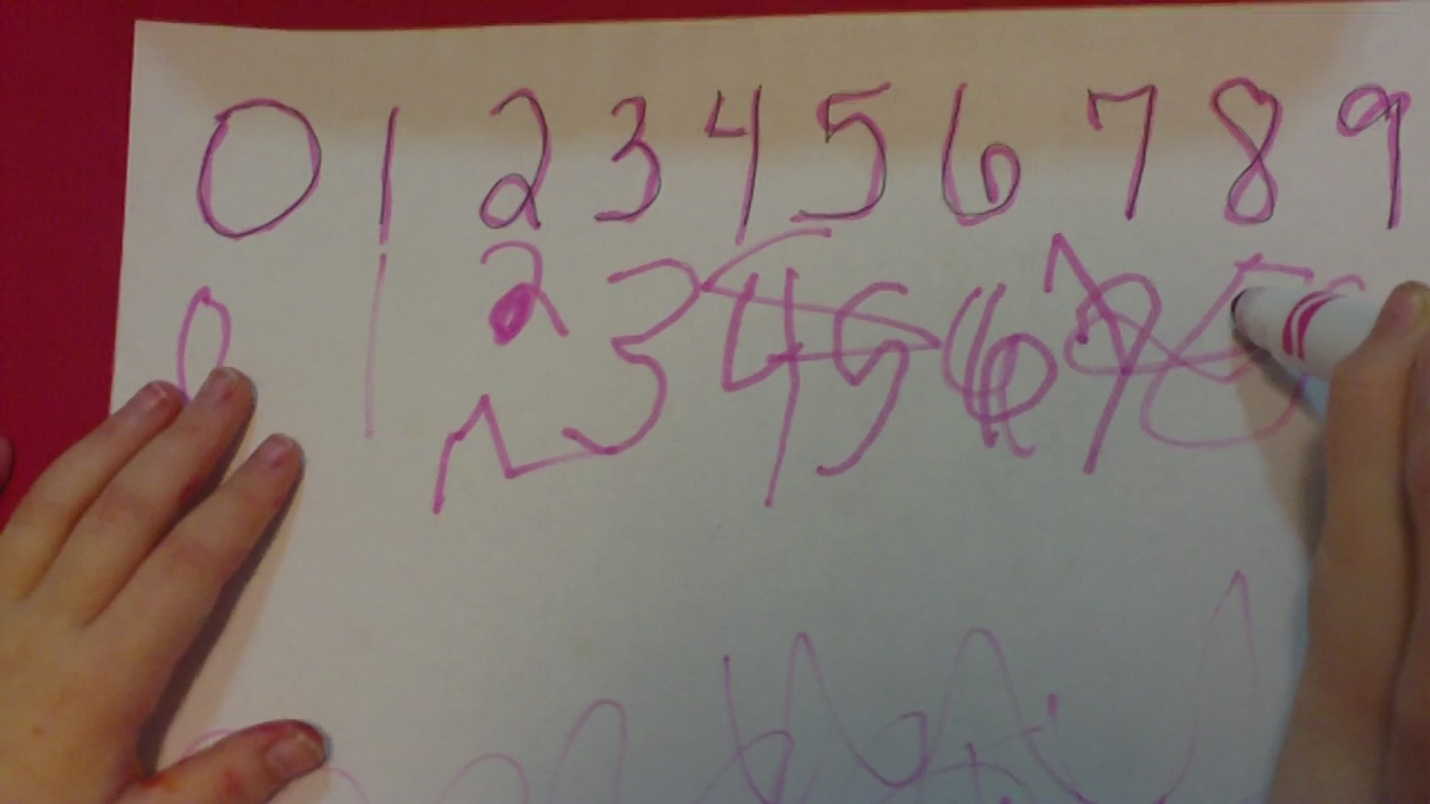 0 1 2 3 4 5 6 7 8 9
0 1 2 3 4 5 6 7